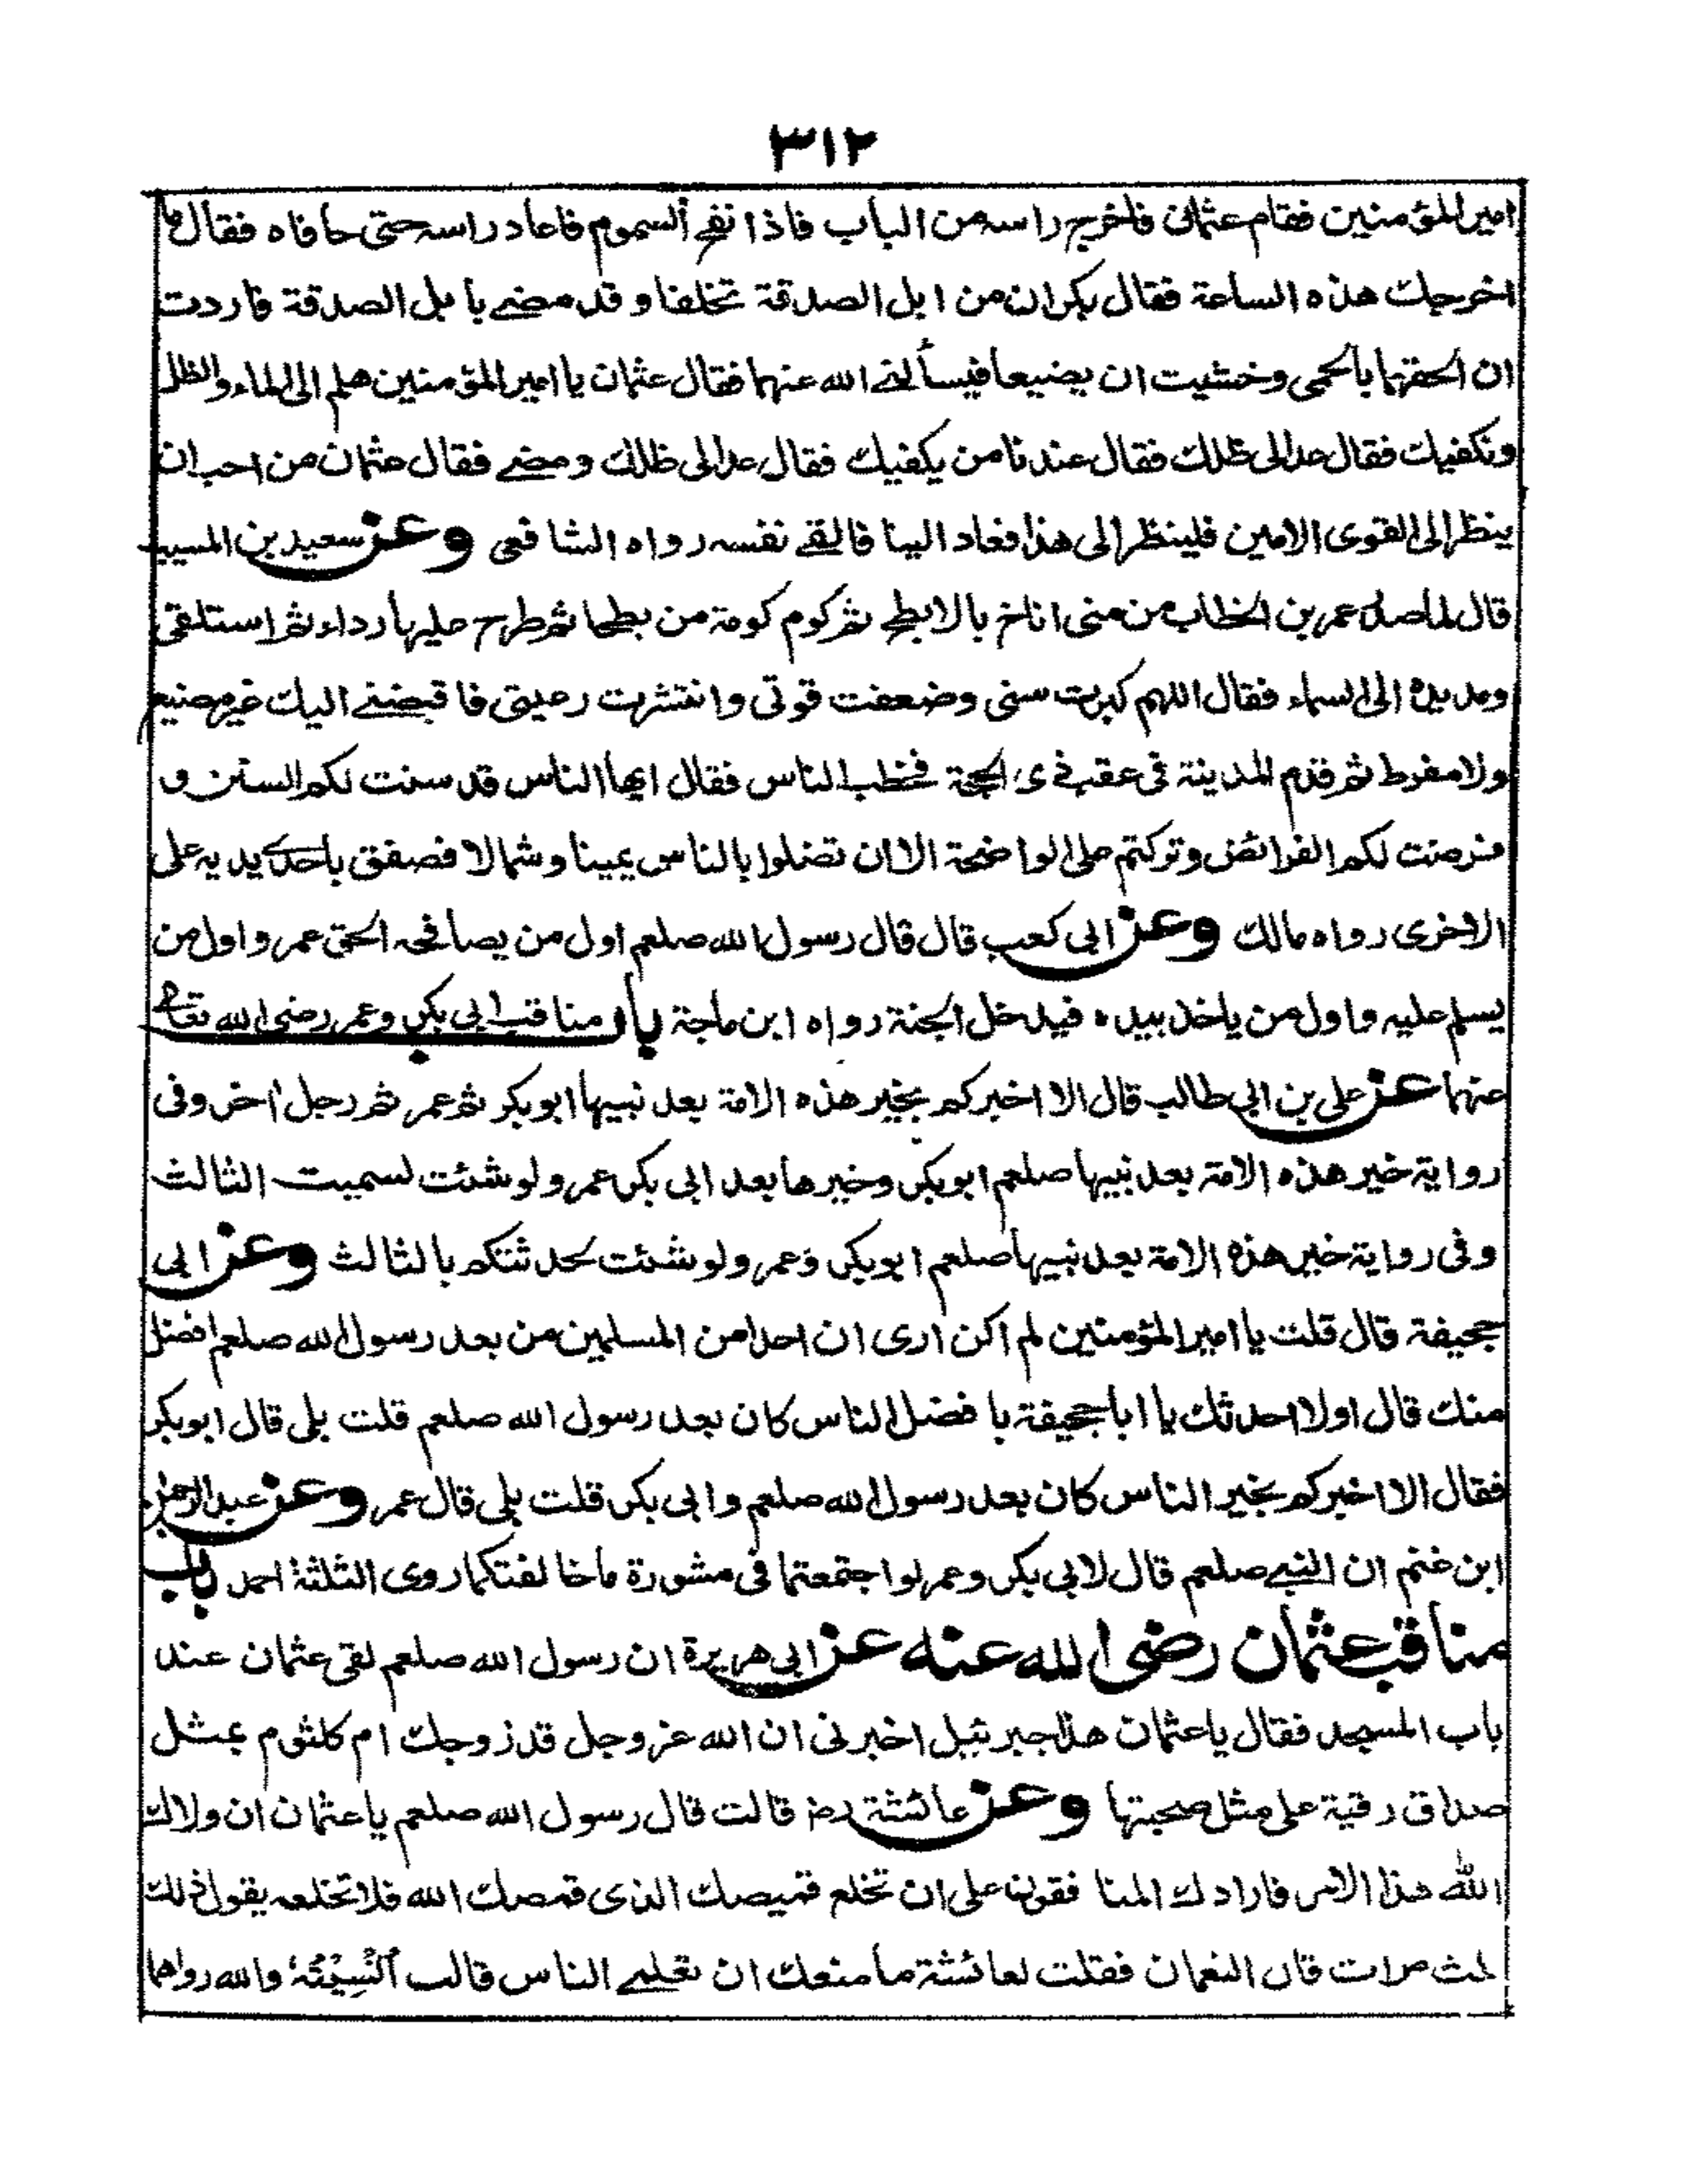 ٣١٢
امير المؤمنين فقام عثمان فاخرج راسه من الباب فاذا نفح السموم فاعاد راسه حتى حاذاه فقال ما
اخرجك هذه الساعة فقال بكران من ابل الصدقة تخلفا و قد مضى بابل الصدقة فاردت
ان الحقهما بالحمى وخشيت ان يضيعا فيسألنى الله عنهما فقال عثمان يا امير المؤمنين هلم الى الماء والظل
ونكفيك فقال عد الى ظلك فقال عندنا من يكفيك فقال عد الى ظلك ومضى فقال عثمان من احب ان
ينظر الى القوى الامين فلينظر الى هذا فعاد الينا فالقى نفسه رواه الشافعى وعن سعيد بن المسيب
قال لما صدر عمر بن الخطاب من منى اناخ بالابطح ثم كوم كومة من بطحا ثم طرح عليها رداء ثم استلقى
ومد يده الى السماء فقال اللهم كبرت سنى وضعفت قوتى وانتشرت رعيتى فاقبضنى اليك غير مضيع
ولا مفرط ثم قدم المدينة فى عقب ذى الحجة فخطب الناس فقال ايها الناس قد سنت لكم السنن و
فرضت لكم الفرائض وتركتم على الواضحة الا ان تضلوا بالناس يمينا وشمالا فصفق باحدى يديه على
الاخرى رواه مالك وعن ابى كعب قال قال رسول الله صلعم اول من يصافحه الحق عمر واول من
يسلم عليه واول من ياخذ بيده فيدخل الجنة رواه ابن ماجة باب مناقب ابى بكر وعمر رضى الله تعالى
عنهما عن على بن ابى طالب قال الا اخبركم بخير هذه الامة بعد نبيها ابو بكر ثم عمر ثم رجل اخر وفى
رواية خير هذه الامة بعد نبيها صلعم ابو بكر وخيرها بعد ابى بكر عمر ولو شئت لسميت الثالث
وفى رواية خير هذه الامة بعد نبيها صلعم ابو بكر وعمر ولو شئت لحدثتكم بالثالث وعن ابى
جحيفة قال قلت يا امير المؤمنين لم اكن ارى ان احدا من المسلمين من بعد رسول الله صلعم افضل
منك قال اولا احدثك يا ابا جحيفة با فضل الناس كان بعد رسول الله صلعم قلت بلى قال ابو بكر
فقال الا اخبركم بخير الناس كان بعد رسول الله صلعم وابى بكر قلت بلى قال عمر وعن عبد الرحمن
ابن غنم ان النبى صلعم قال لابى بكر وعمر لو اجتمعتما فى مشورة ما خالفتكما روى الثلثة احمد باب
مناقب عثمان رضى الله عنه عن ابى هريرة ان رسول الله صلعم لقى عثمان عند
باب المسجد فقال يا عثمان هذا جبرئيل اخبرنى ان الله عز وجل قد زوجك ام كلثوم بمثل
صداق رقية على مثل صحبتها وعن عائشة رض قالت قال رسول الله صلعم يا عثمان ان ولاك
الله هذا الامر فارادك المنافقون على ان تخلع قميصك الذى قمصك الله فلا تخلعه يقول ذلك
لث مرات قال النعمان فقلت لعائشة ما منعك ان تعلمى الناس قالت اُنْسِيْتُهُ والله رواهما